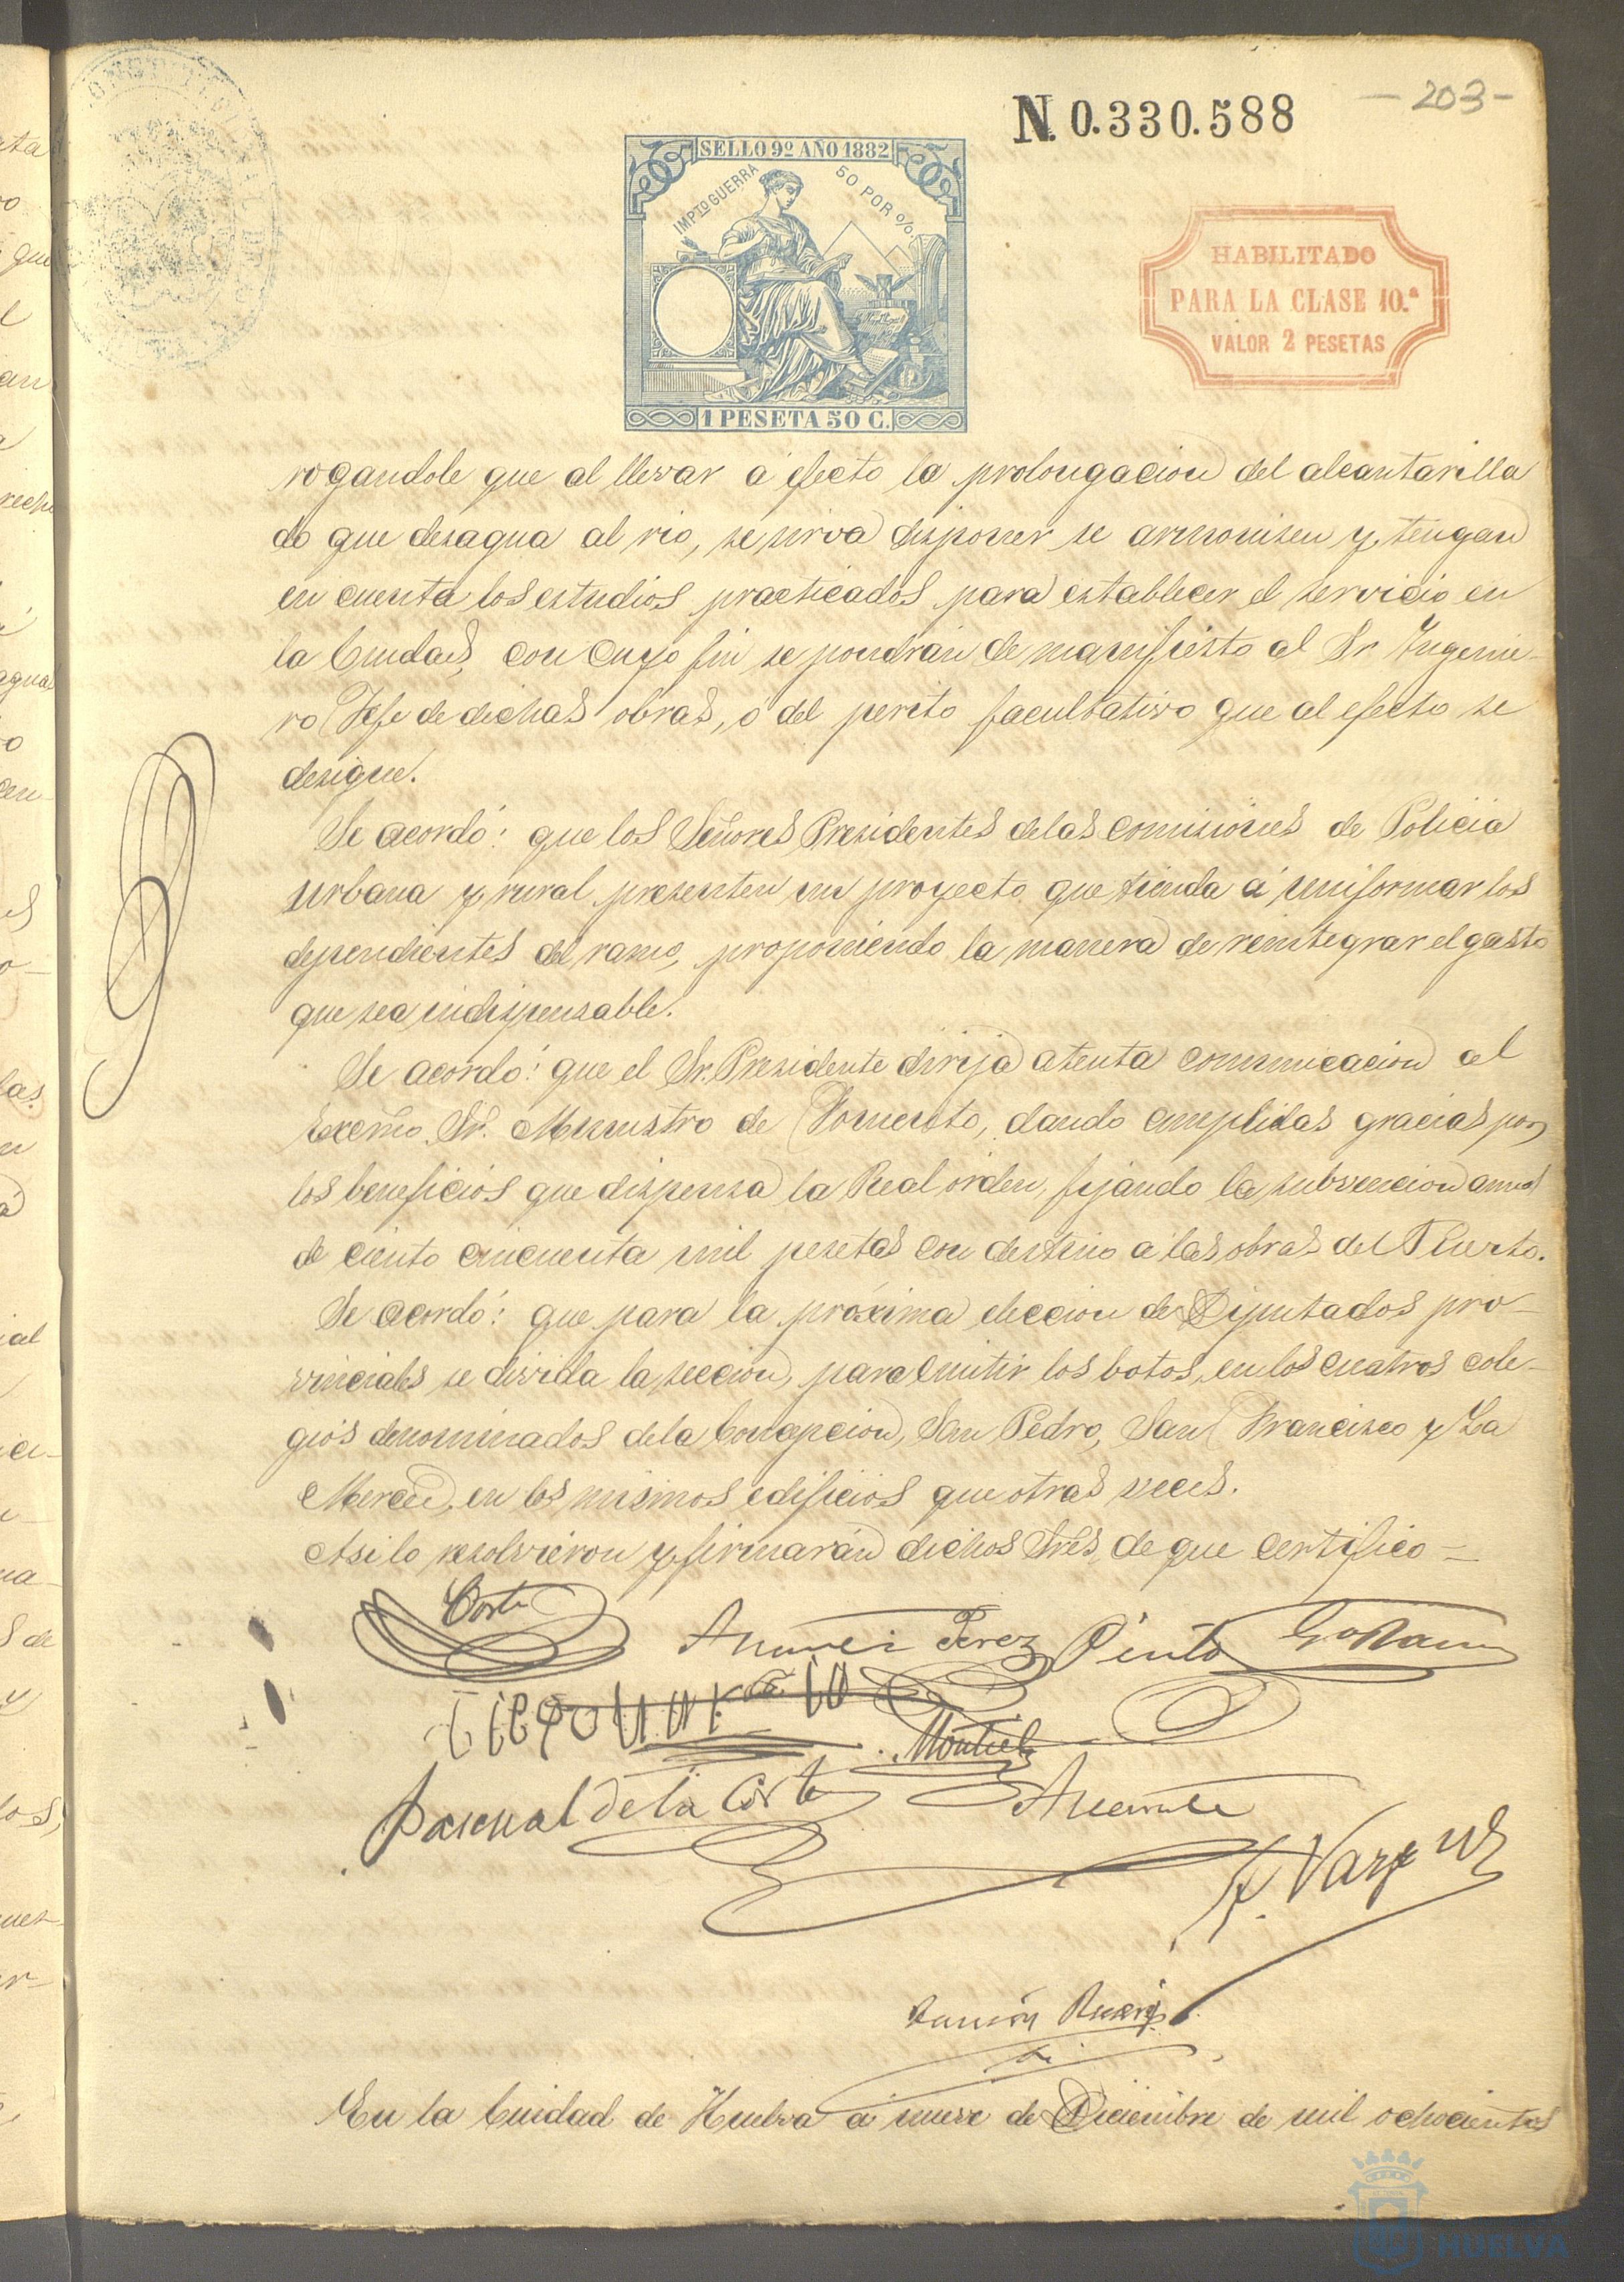 N. 0.330.588
- 203 -
SELLO 9º AÑO 1882
IMPTO GUERRA 50 POR %
1 PESETA 50 C.
HABILITADO
PARA LA CLASE 10.ª
VALOR 2 PESETAS
rogandole que al llevar á efecto la prolongacion del alcantarilla
do que desagua al rio, se sirva disponer se armonisen y tengan
en cuenta los estudios practicados para establecer el servicio en
la Ciudad, con cuyo fin se pondrán de manifiesto al Sr Ingenie-
ro Jefe de dichas obras, ó del perito facultativo que al efecto se
designe.
Se acordó: que los Señores Presidentes de las comisiones de Policia
urbana y rural presenten un proyecto que tienda á uniformar los
dependientes del ramo, proponiendo la manera de reintegrar el gasto
que sea indispensable.
Se acordó: que el Sr. Presidente dirija atenta comunicacion al
Excmo Sr. Ministro de Fomento, dando cumplidas gracias por
los beneficios que dispensa la Real órden, fijando la subvencion anual
de ciento cincuenta mil pesetas con destino a las obras del Puerto.
Se acordó: que para la próxima eleccion de Diputados pro-
vinciales se divida la seccion, para emitir los botos, en los cuatros cole-
gios denominados de la Concepcion, San Pedro, San Francisco y La
Merced, en los mismos edificios que otras veces.
Asi lo resolvieron y firmarán dichos Sres, de que certifico=
Corte
Perez Pinto
Montiel
Pascual de la Corte
F. Vazquez
Ramón
En la Ciudad de Huelva á nueve de Diciembre de mil ochocientos
HUELVA